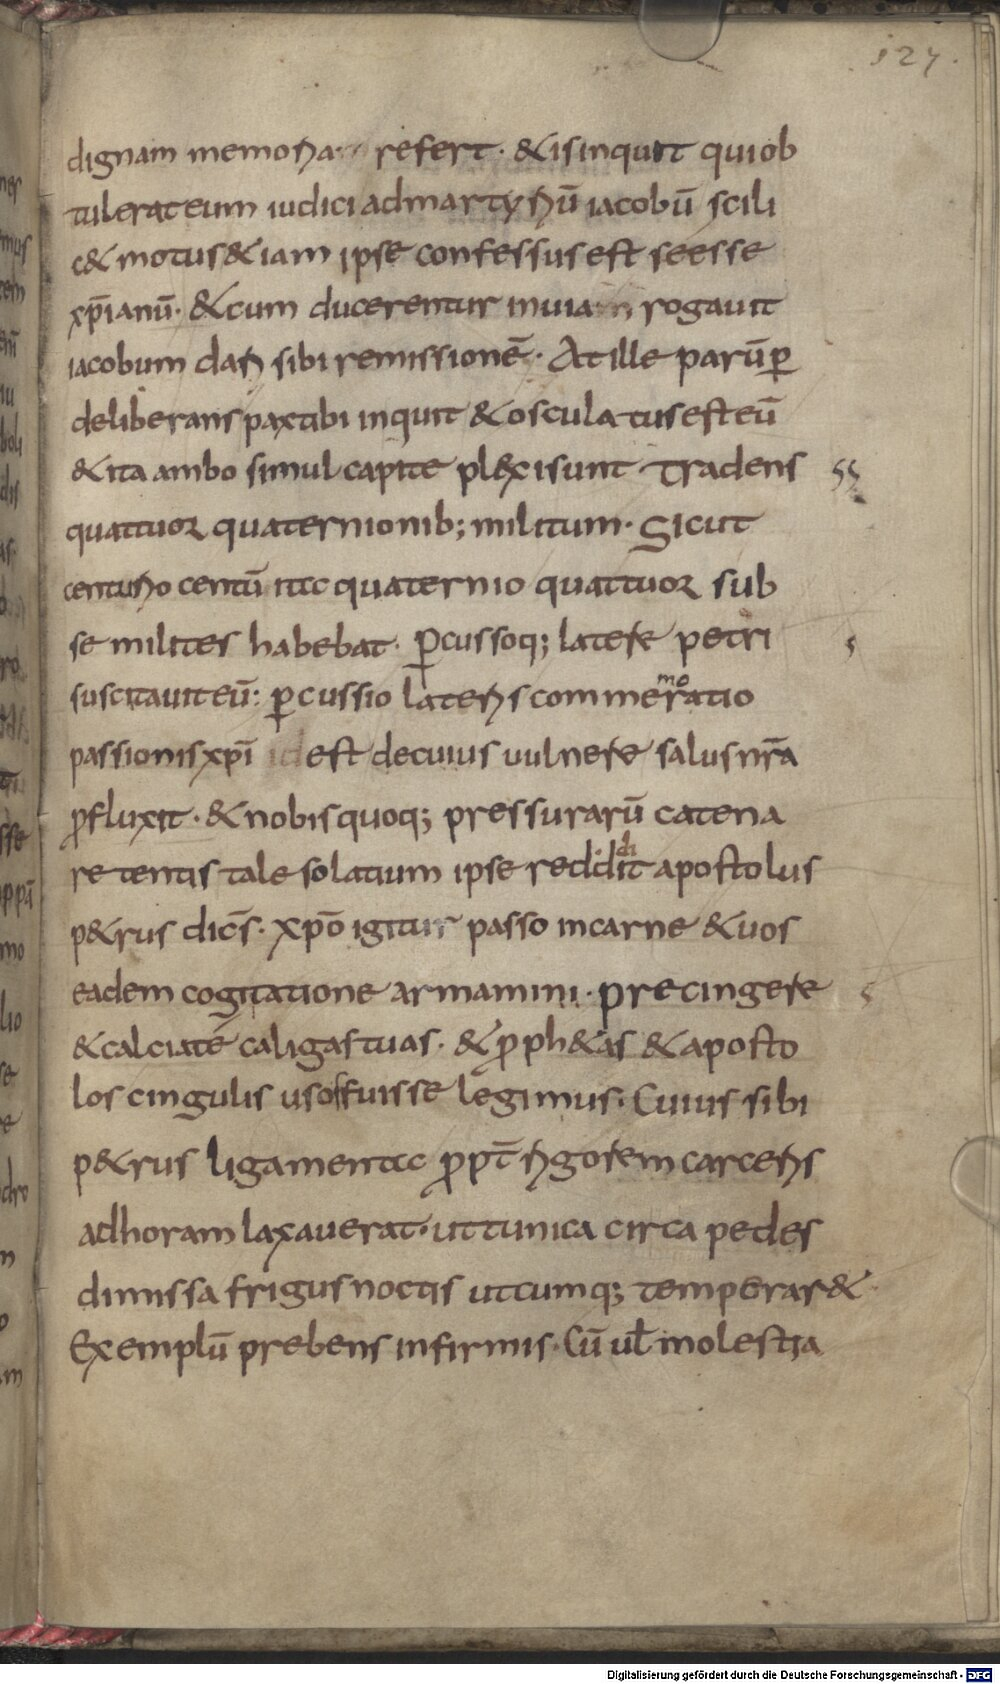 127.
dignam memoria refert · & is inquit qui ob
tulerat eum iudici ad martyriū iacobū scili
c& motus &iam ipse confessus est se esse
xp̄ianū · & cum ducerentur in uia rogauit
iacobum dari sibi remissionē · At ille parūꝑ
deliberans pax tibi inquit & osculatus est eū
& ita ambo simul capite pl&xi sunt · Tradens
quattuor quaternionib; militum · Sicut
centurio centū ita quaternio quattuor sub
se milites habebat · Ꝑcussoq; latere petri
suscitauit eū: ꝑcussio lateris commemoratio
passionis xp̄i id est de cuius uulnere salus nr̄a
ꝓfluxit · & nobis quoq; pressurarū catena
retentis tale solatium ipse reddidit apostolus
p&rus dic̄s · xp̄o igitur passo in carne & uos
eadem cogitatione armamini · precingere
& calciate caligas tuas · & ꝓph&as & aposto
los cingulis usos fuisse legimus · Cuius sibi
p&rus ligamenta ꝓpt̄ rigorem carceris
ad horam laxauerat · ut tunica circa pedes
dimissa frigus noctis utcumq; temperar&
Exemplū prebens infirmis · Cū ul̄ molestia
Digitalisierung gefördert durch die Deutsche Forschungsgemeinschaft - DFG